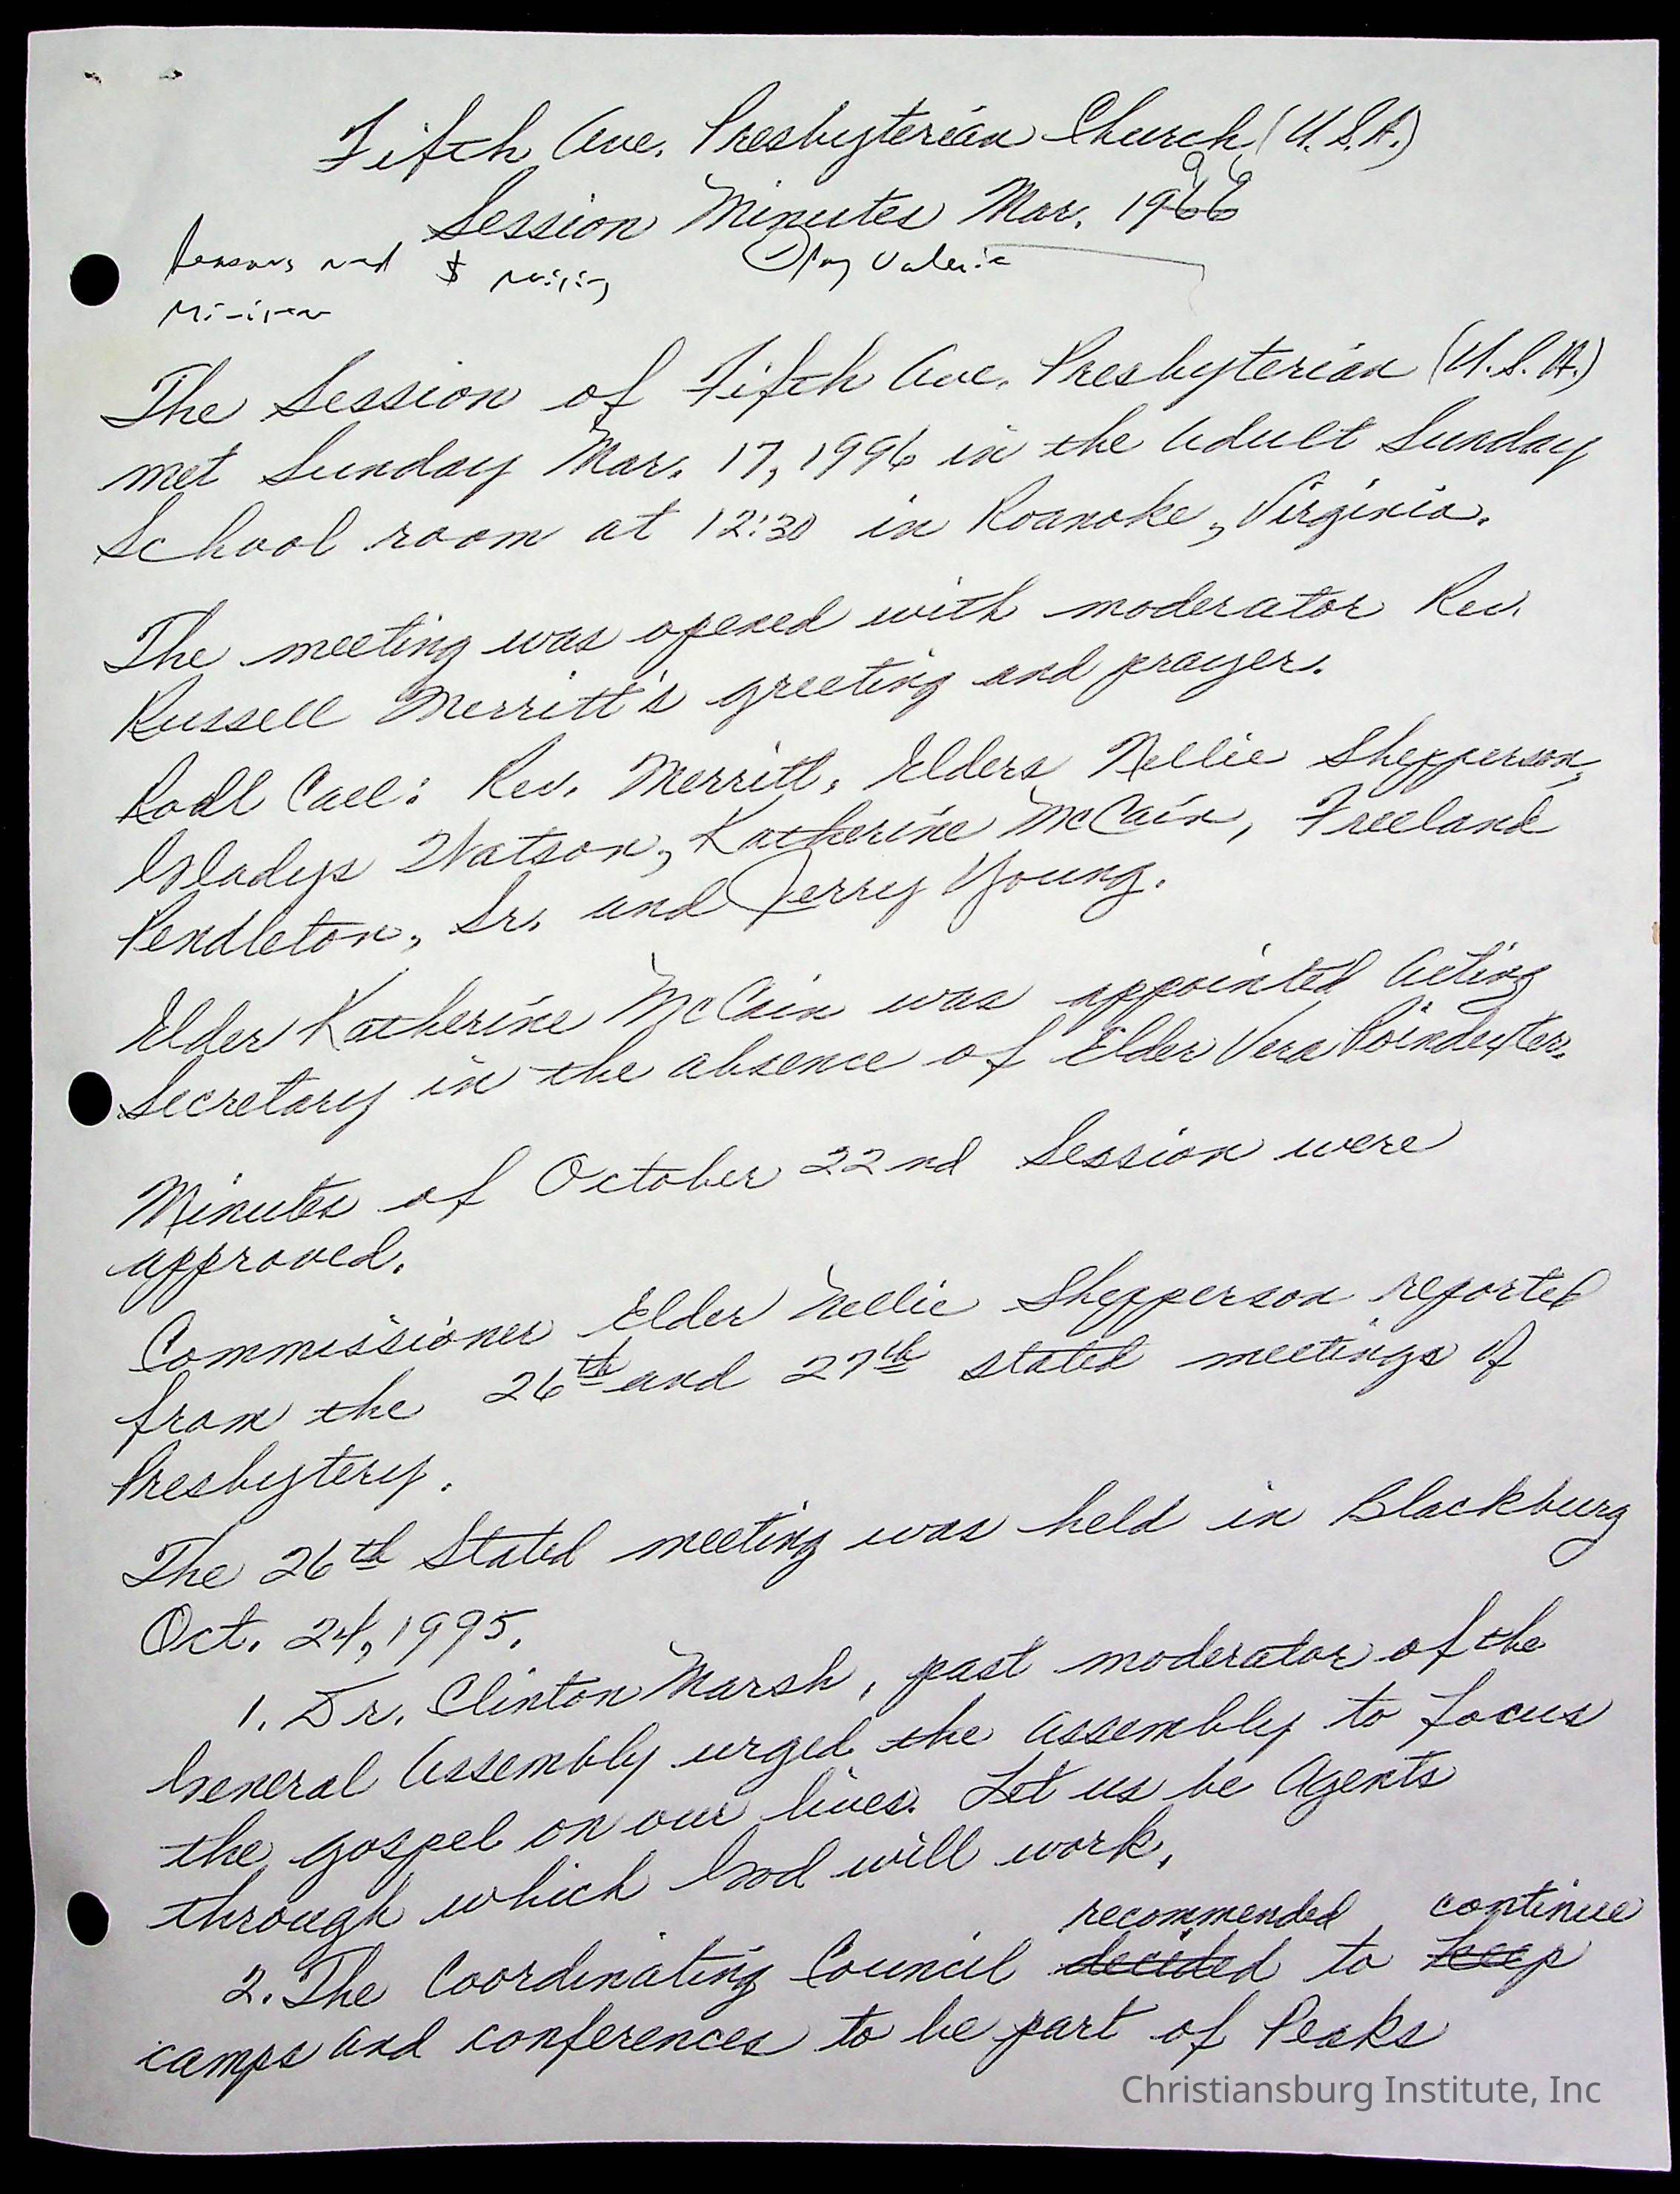 Fifth Ave. Presbyterian Church (U.S.A.)
Session Minutes Mar. 1996
and $
The Session of Fifth Ave. Presbyterian (U.S.A.)
met Sunday Mar. 17, 1996 in the Adult Sunday
School room at 12:30 in Roanoke, Virginia.
The meeting was opened with moderator Rev.
Russell Merritt's greeting and prayer.
Roll Call: Rev. Merritt, Elders Nellie Shepperson,
Gladys Watson, Katherine McCain, Freeland
Pendleton, Sr. and Jerry Young.
Elder Katherine McCain was appointed Acting
Secretary in the absence of Elder Vera Poindexter.
Minutes of October 22nd Session were
approved.
Commissioner Elder Nellie Shepperson reported
from the 26th and 27th stated meetings of
Presbytery.
The 26th Stated meeting was held in Blackburg
Oct. 24, 1995.
1. Dr. Clinton Marsh, past moderator of the
General Assembly urged the assembly to focus
the gospel on our lives. Let us be Agents
through which God will work.
recommended continue
2. The Coordinating Council decided to keep
camps and conferences to be part of Peaks
Christiansburg Institute, Inc